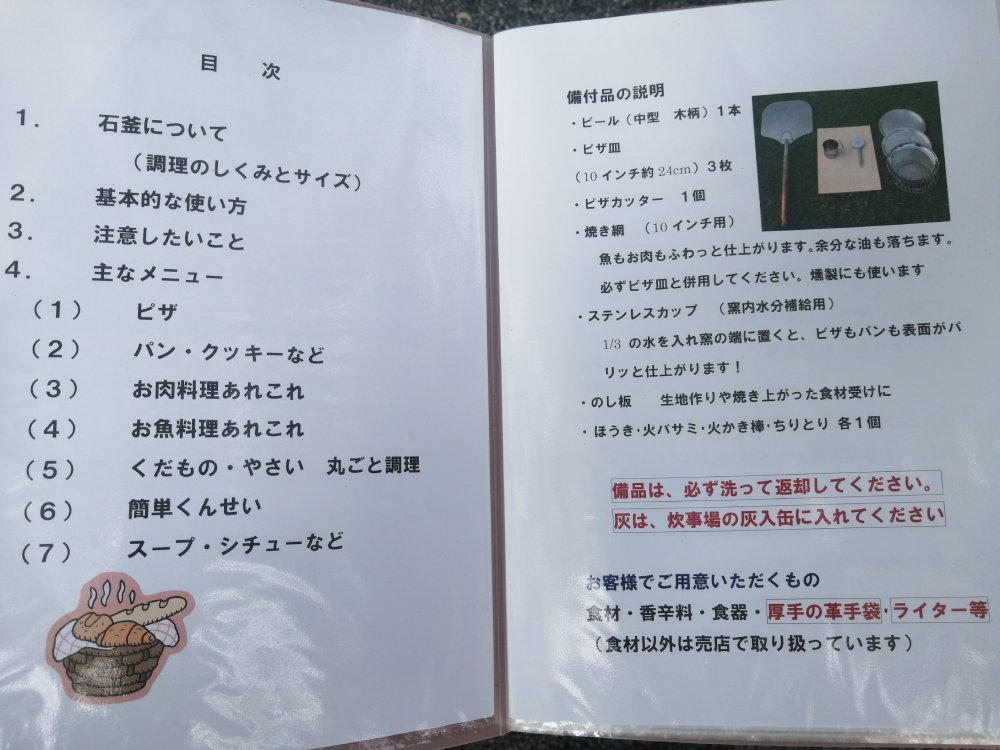 目 次
1. 石釜について
（調理のしくみとサイズ）
2. 基本的な使い方
3. 注意したいこと
4. 主なメニュー
（1） ピザ
（2） パン・クッキーなど
（3） お肉料理あれこれ
（4） お魚料理あれこれ
（5） くだもの・やさい 丸ごと調理
（6） 簡単くんせい
（7） スープ・シチューなど
備付品の説明
・ピール（中型 木柄）1本
・ピザ皿
（10インチ約24cm）3枚
・ピザカッター 1個
・焼き網 （10インチ用）
魚もお肉もふわっと仕上がります。余分な油も落ちます。
必ずピザ皿と併用してください。燻製にも使います
・ステンレスカップ （窯内水分補給用）
1/3 の水を入れ窯の端に置くと、ピザもパンも表面がパ
リッと仕上がります！
・のし板 生地作りや焼き上がった食材受けに
・ほうき・火バサミ・火かき棒・ちりとり 各1個
備品は、必ず洗って返却してください。
灰は、炊事場の灰入缶に入れてください
お客様でご用意いただくもの
食材・香辛料・食器・厚手の革手袋・ライター等
（食材以外は売店で取り扱っています）